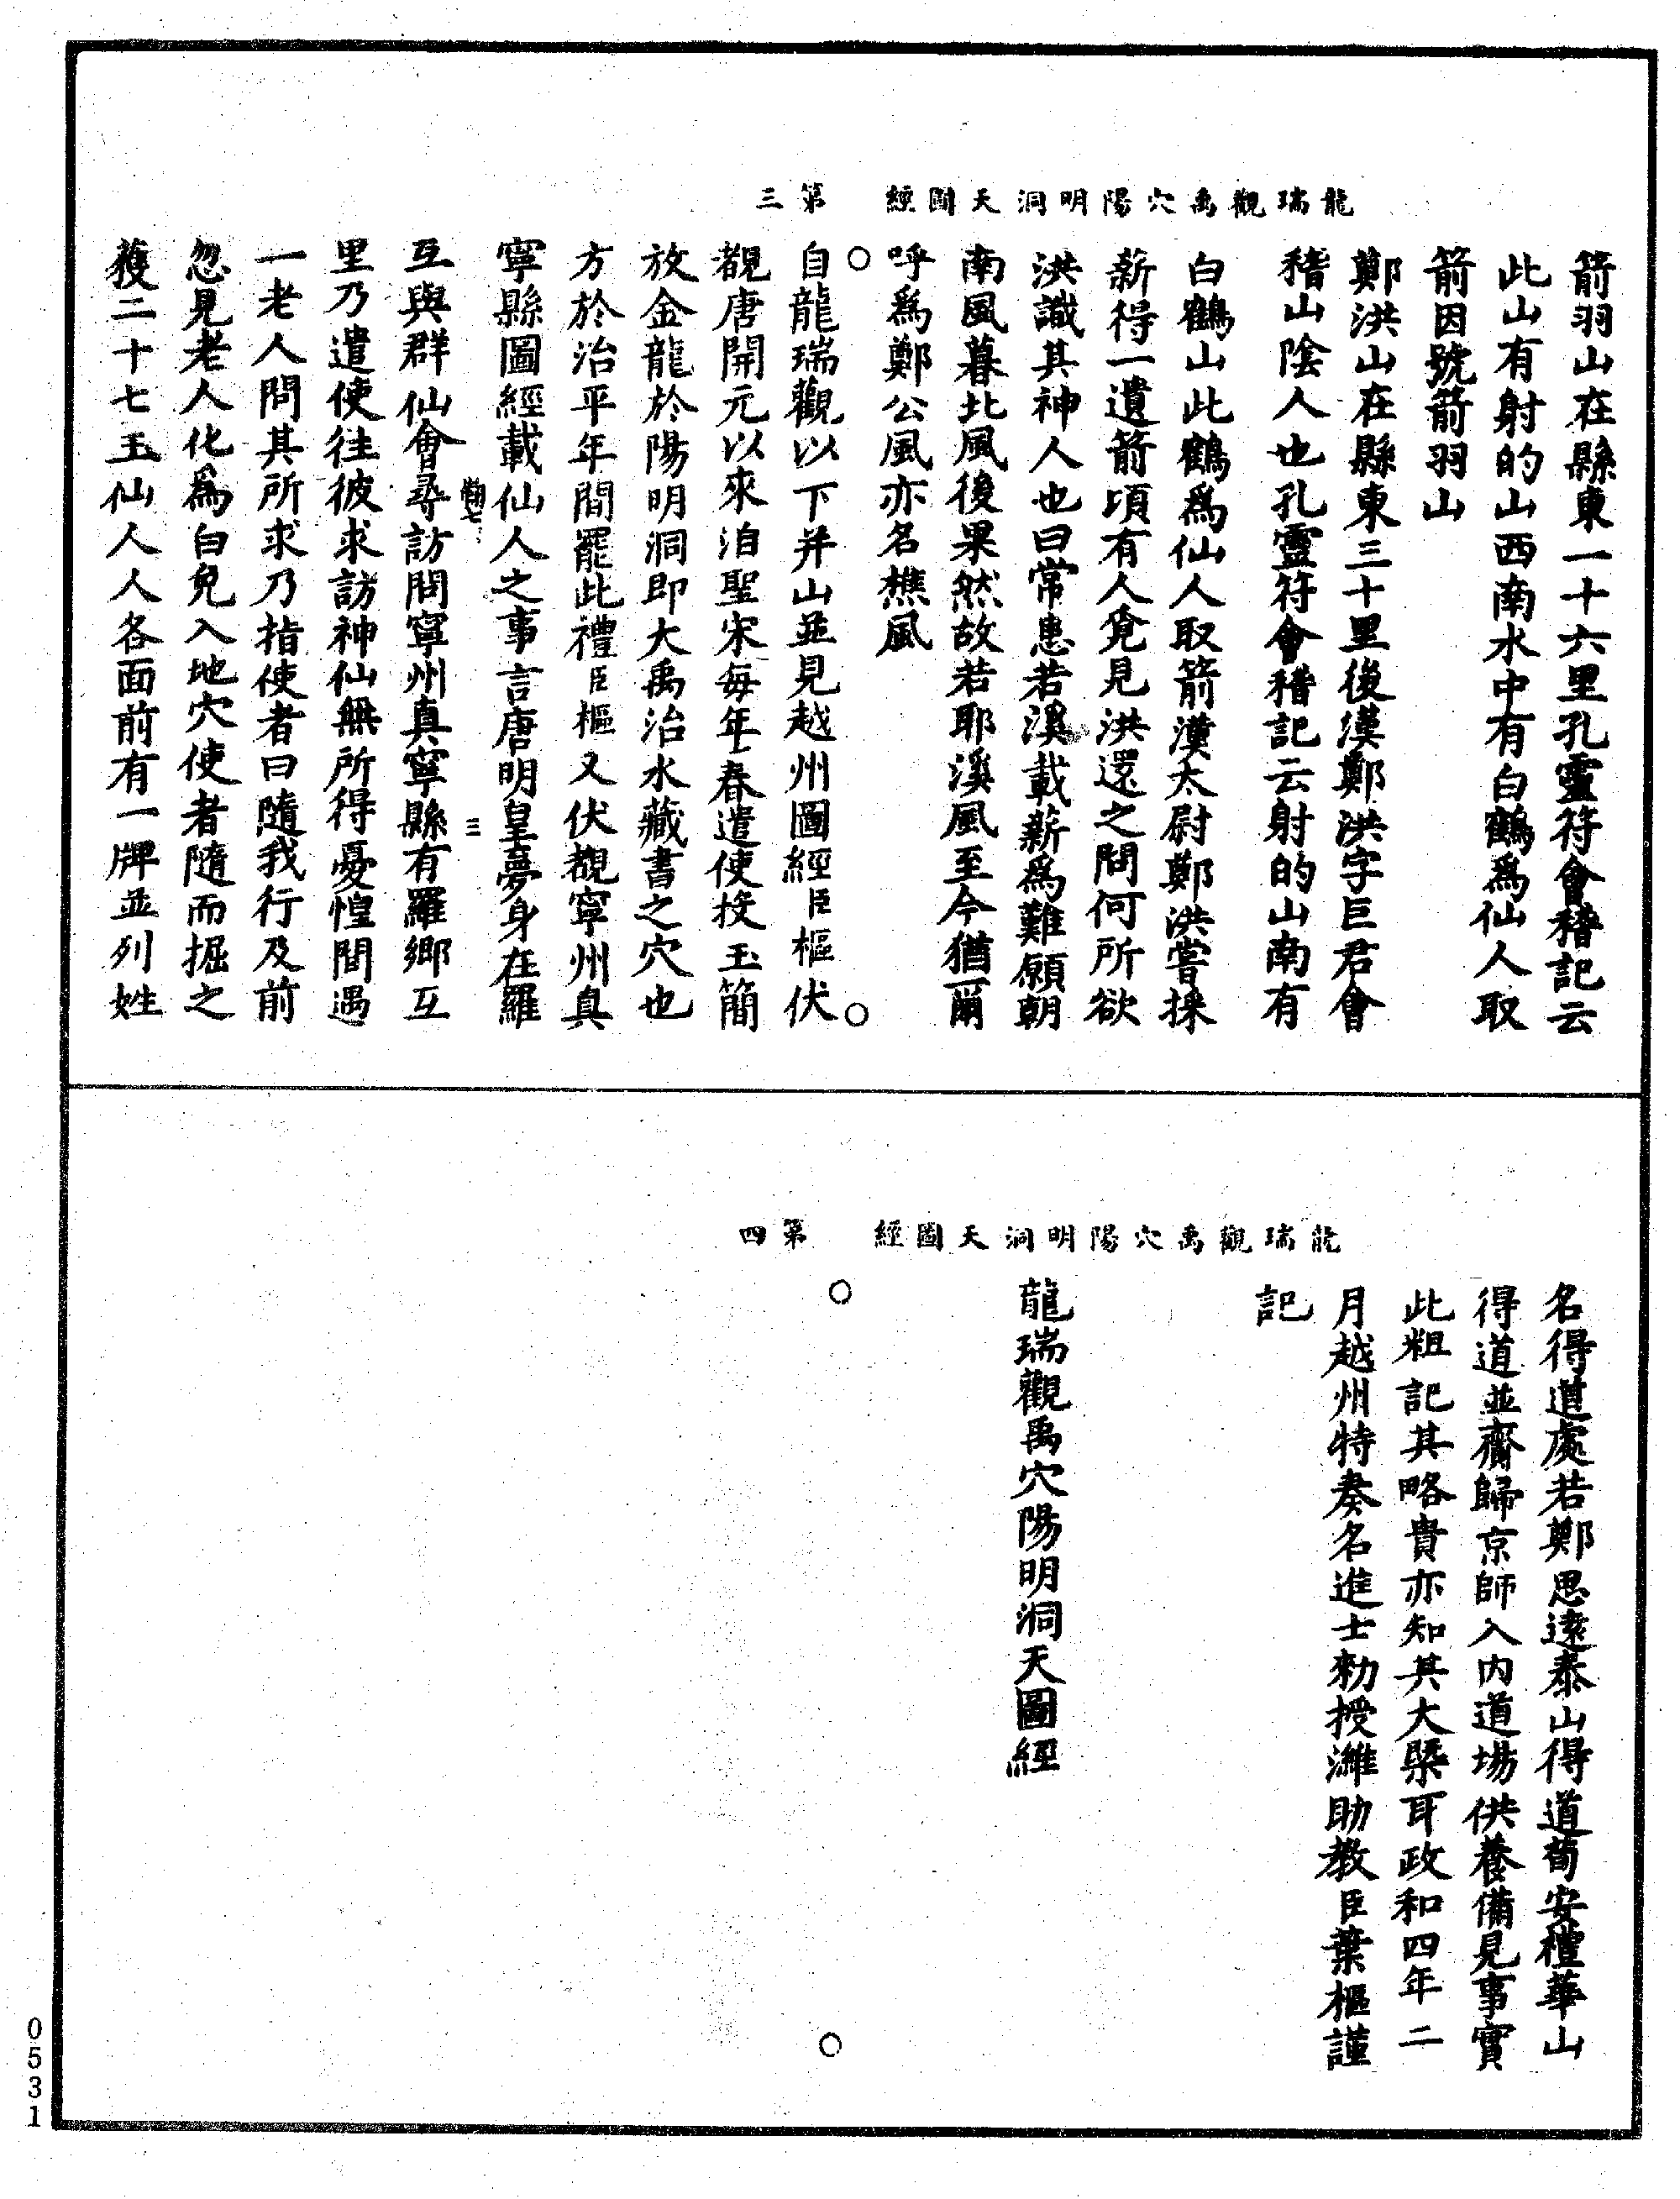 龍瑞觀禹穴陽明洞天圖經　第三
箭羽山在縣東一十六里孔靈符會稽記云
此山有射的山西南水中有白鶴爲仙人取
箭因號箭羽山
鄭洪山在縣東三十里後漢鄭洪字巨君會
稽山陰人也孔靈符會稽記云射的山南有
白鶴山此鶴爲仙人取箭漢太尉鄭洪嘗採
薪得一遺箭頃有人覓見洪還之問何所欲
洪識其神人也曰常患若溪載薪爲難願朝
南風暮北風後果然故若耶溪風至今猶爾
呼爲鄭公風亦名樵風
自龍瑞觀以下并山並見越州圖經臣樞伏
覩唐開元以來洎聖宋每年春遣使投玉簡
放金龍於陽明洞即大禹治水藏書之穴也
方於治平年間罷此禮臣樞又伏覩寧州真
寧縣圖經載仙人之事言唐明皇夢身在羅
三
互與群仙會尋訪問寧州真寧縣有羅鄉互
里乃遣使往彼求訪神仙無所得憂惶間遇
一老人問其所求乃指使者曰隨我行及前
忽見老人化爲白兔入地穴使者隨而掘之
獲二十七玉仙人人各面前有一牌並列姓
龍瑞觀禹穴陽明洞天圖經　第四
名得道處若鄭思遠泰山得道荀安禮華山
得道並齎歸京師入內道場供養備見事實
此粗記其略貴亦知其大槩耳政和四年二
月越州特奏名進士勑授濰助教臣葉樞謹
記
龍瑞觀禹穴陽明洞天圖經
0531